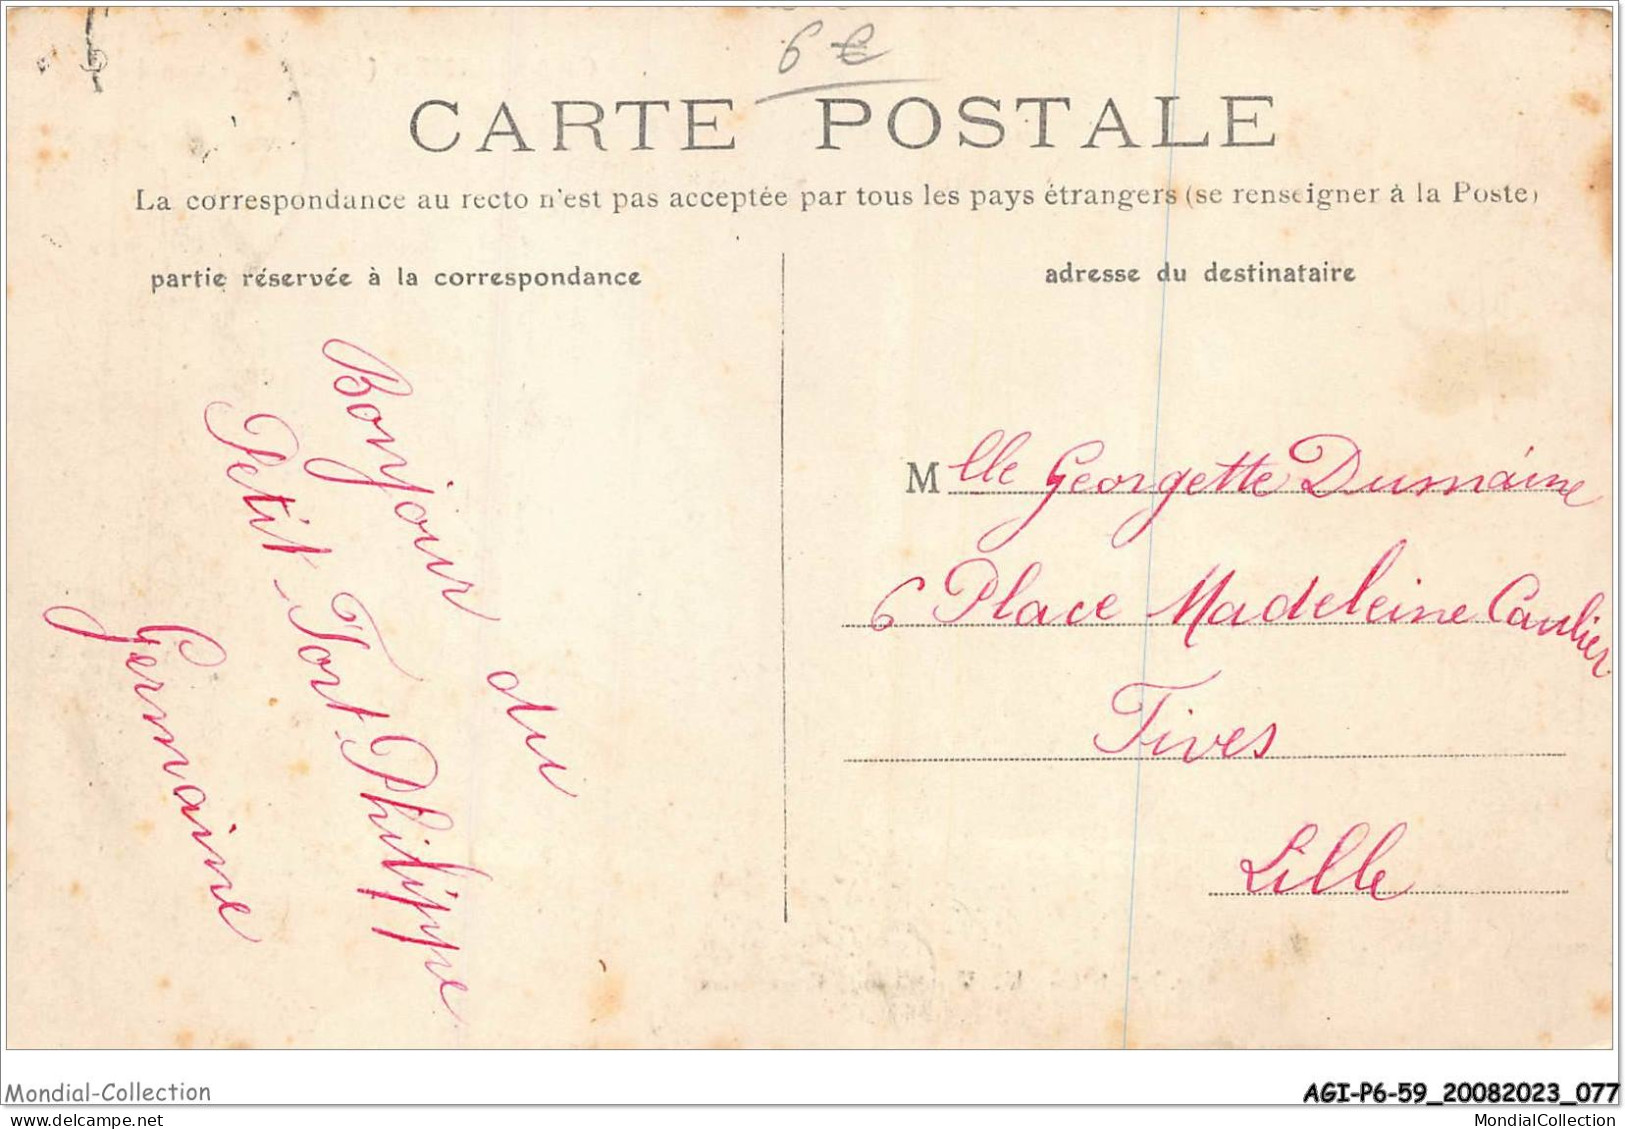 6 €
CARTE POSTALE
La correspondance au recto n'est pas acceptée par tous les pays étrangers (se renseigner à la Poste)
partie réservée à la correspondance
Bonjour du
Petit-Fort-Philippe
Germaine
adresse du destinataire
Mlle Georgette Dumaine
6 Place Madeleine Caulier
Fives
Lille
Mondial-Collection
AGI-P6-59_20082023_077
www.delcampe.net
MondialCollection